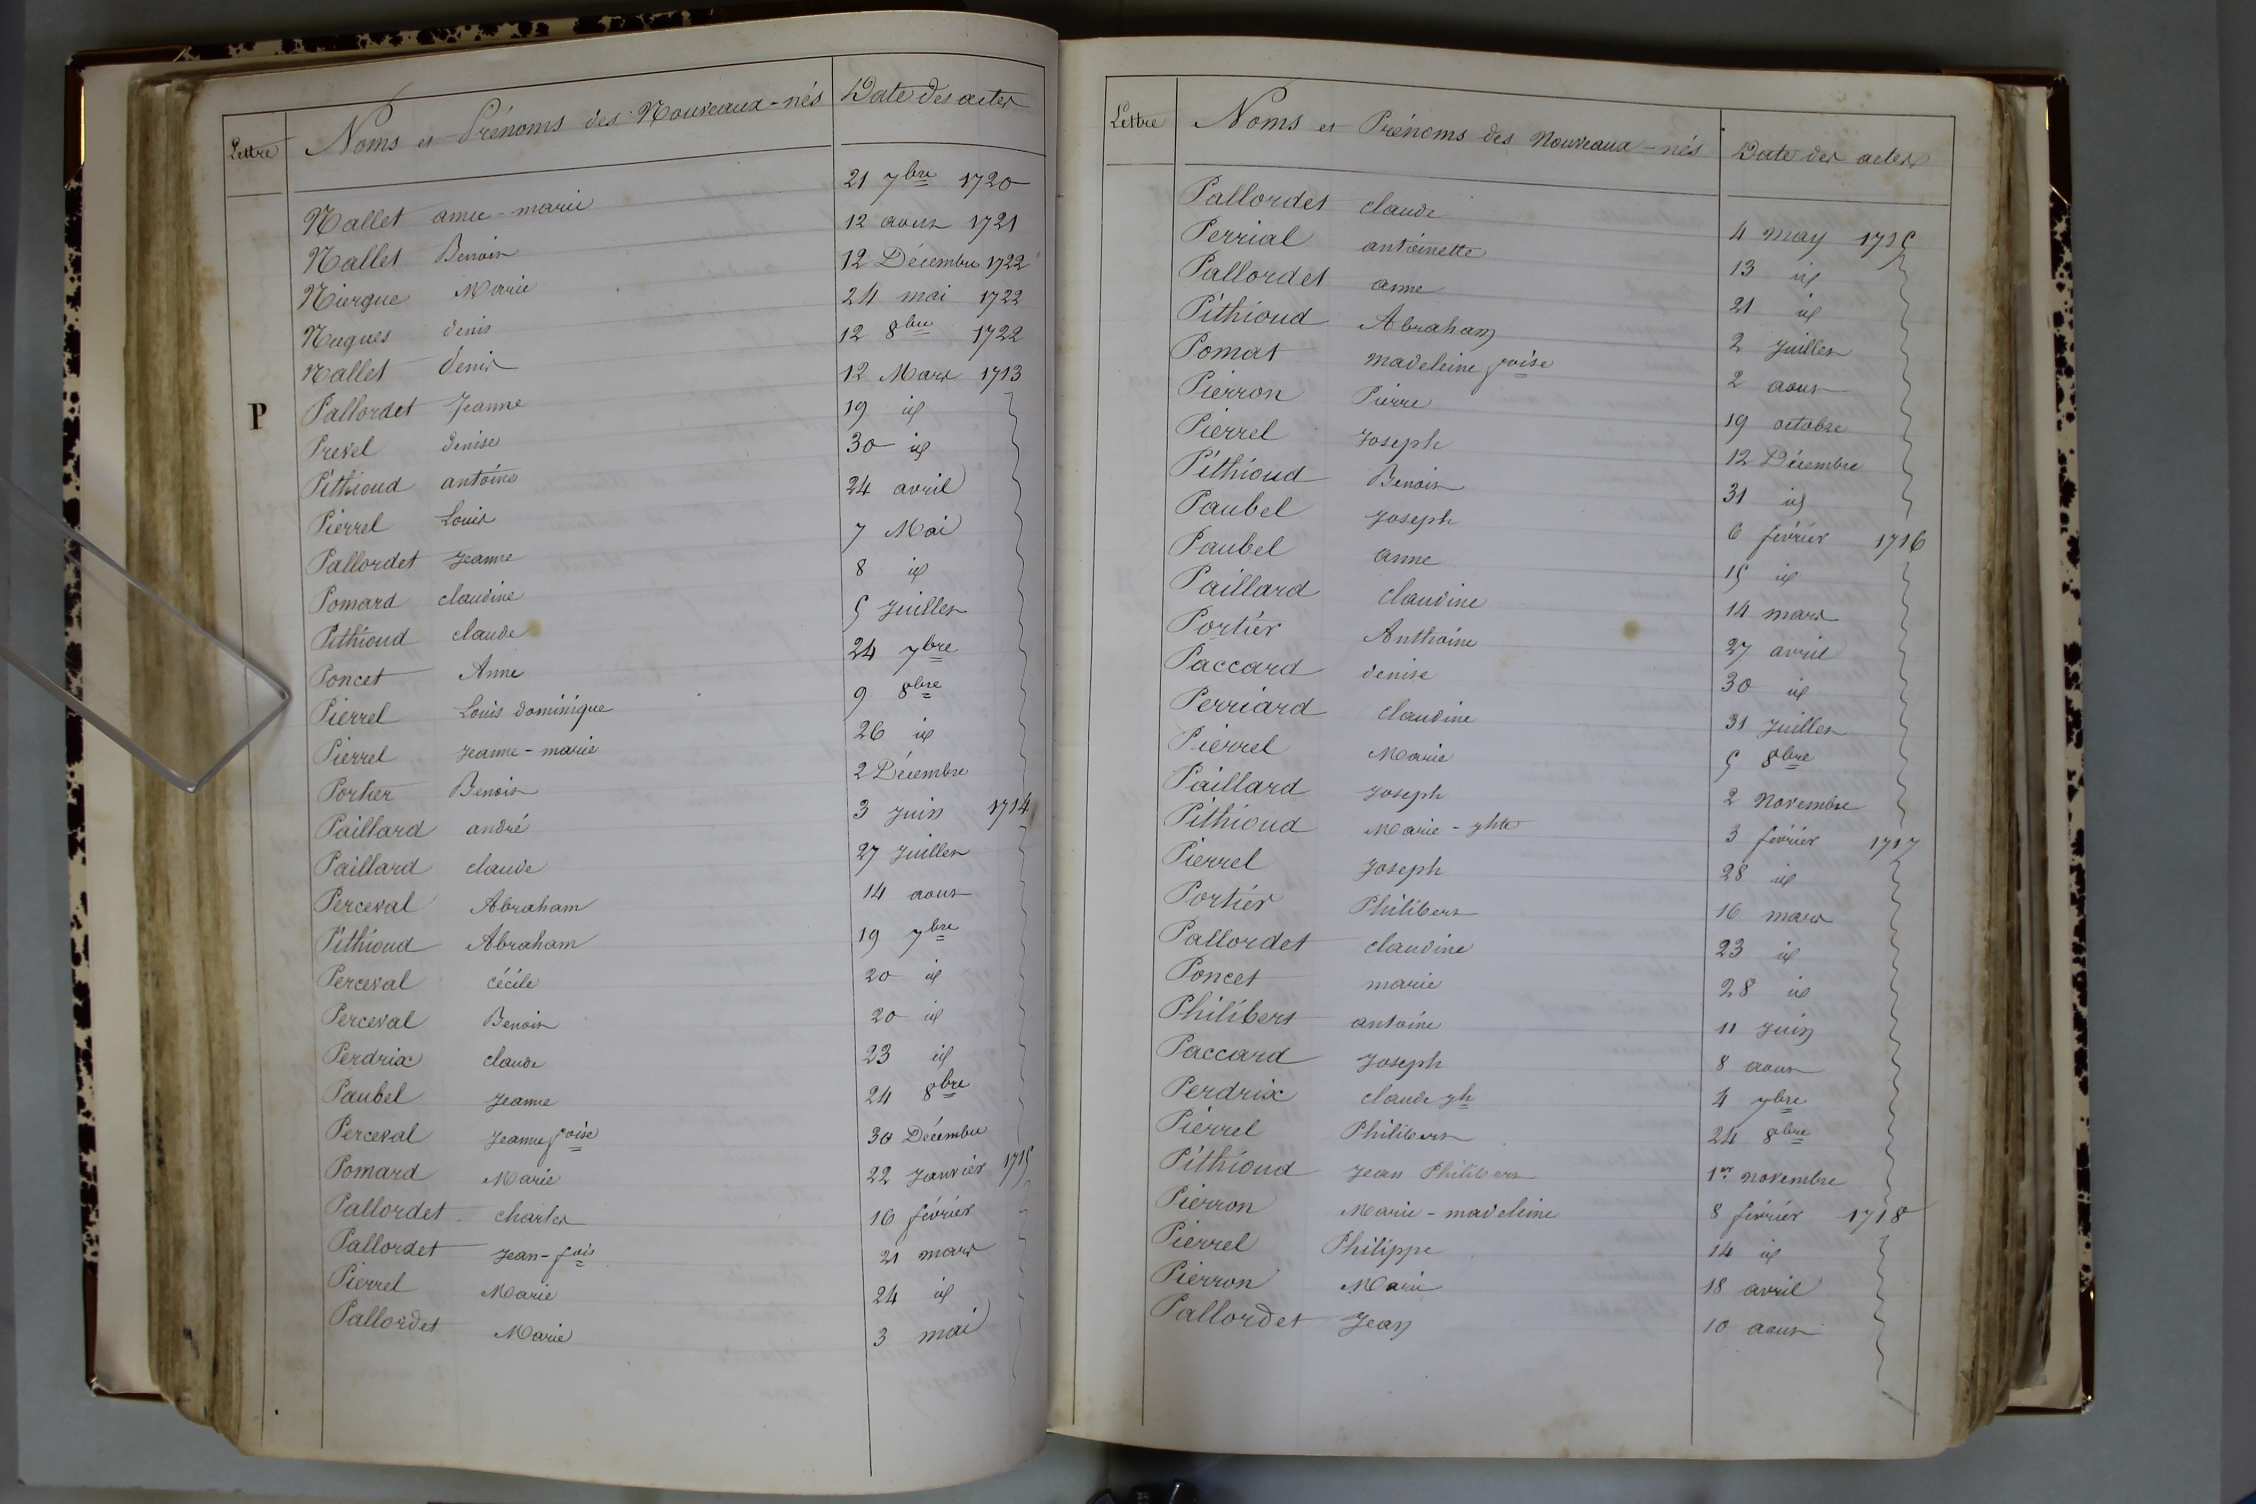 Lettre Noms et Prénoms des Nouveaux-nés Date des actes
Nallet anne-marie 21 7bre 1720
Nallet Benoit 12 aout 1721
Niergue Marie 12 Décembre 1722
Nugues denis 24 mai 1722
Nallet denis 12 8bre 1722
P Pallordet Jeanne 12 Mars 1713
Prevel denise 19 id
Pithioud antoine 30 id
Pierrel Louis 24 avril
Pallordet Jeanne 7 Mai
Pomard claudine 8 id
Pithioud claude 5 Juillet
Poncet Anne 24 7bre
Pierrel Louis dominique 9 8bre
Pierrel Jeanne-marie 26 id
Portier Benoit 2 Décembre
Paillard andré 3 Juin 1714
Paillard claude 27 Juillet
Perceval Abraham 14 aout
Pithioud Abraham 19 7bre
Perceval cécile 20 id
Perceval Benoit 20 id
Perdrix claude 23 id
Paubel Jeanne 24 8bre
Perceval Jeanne foise 30 Décembre
Pomard Marie 22 Janvier 1715
Pallordet charles 16 février
Pallordet Jean-fois 21 mars
Pierrel Marie 24 id
Pallordet Marie 3 mai
Lettre Noms et Prénoms des Nouveaux-nés Date des actes
Pallordet claude 4 may 1715
Perrial antoinette 13 id
Pallordet anne 21 id
Pithioud Abraham 2 Juillet
Pomat madeleine foise 2 aout
Pierron Pierre 19 octobre
Pierrel Joseph 12 Décembre
Pithioud Benoit 31 id
Paubel Joseph 6 février 1716
Paubel anne 15 id
Paillard claudine 14 mars
Portier Anthoine 27 avril
Paccard denise 30 id
Perriard claudine 31 Juillet
Pierrel Marie 5 8bre
Paillard Joseph 2 Novembre
Pithioud Marie-yhte 3 février 1717
Pierrel Joseph 28 id
Portier Philibert 16 mars
Pallordet claudine 23 id
Poncet marie 28 id
Philibert antoine 11 Juin
Paccard Joseph 8 aout
Perdrix claude jh 4 7bre
Pierrel Philibert 24 8bre
Pithioud Jean Philibert 1er novembre
Pierron Marie-madeleine 8 février 1718
Pierrel Philippe 14 id
Pierron Marie 18 avril
Pallordet Jean 10 aout